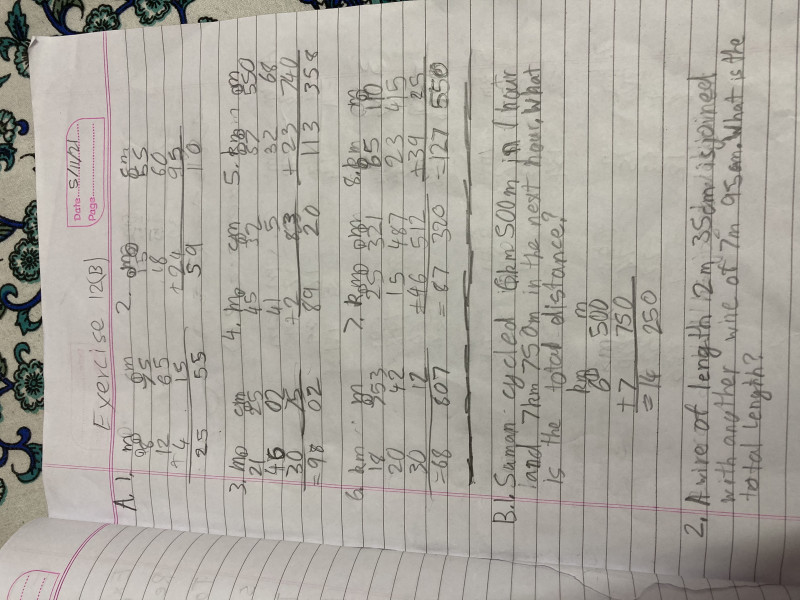 Date 5/11/21
Page
Exercise 12(B)
A. 1. m cm 2. m cm
95 15 55
12 65 18 60
+4 15 +24 95
25 55 59 10
3. m cm 4. m cm 5. km m
21 25 45 32 57 550
46 02 41 5 32 68
30 75 +2 83 +23 740
=98 02 89 20 113 358
6. km m 7. km m 8. km m
18 753 25 321 65 110
20 42 15 487 23 415
30 12 +46 512 +39 25
=68 807 =87 320 =127 550
B.1. Suman cycled 6km 500m in 1 hour
and 7km 750m in the next hour. What
is the total distance?
km m
6 500
+7 750
=14 250
2. A wire of length 12m 35cm is joined
with another wire of 7m 95cm. What is the
total length?